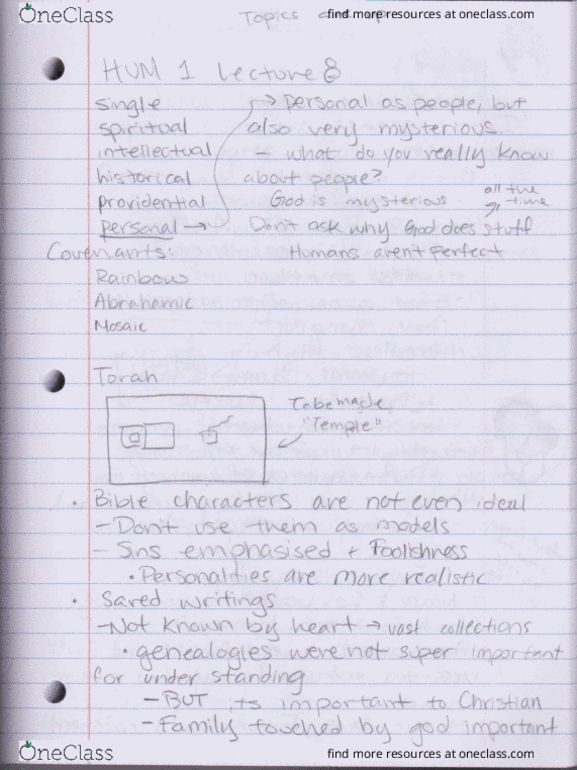 OneClass
find more resources at oneclass.com
Topics
HUM 1 Lecture 8
single
spiritual
intellectual
historical
providential
personal →
→ personal as people, but
also very mysterious
- what do you really know
about people?
God is mysterious
all the
time
Don't ask why God does stuff
Humans aren't perfect
Covenants:
Rainbow
Abrahamic
Mosaic
Torah
Tabernacle,
"Temple"
• Bible characters are not even ideal
- Don't use them as models
- Sins emphasised + Foolishness
• Personalities are more realistic
• Sared writings
- Not known by heart → vast collections
• genealogies were not super important
for under standing
- BUT its important to Christian
- Family touched by god important
OneClass
find more resources at oneclass.com